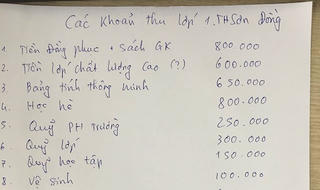 Các khoản thu lớp 1. TH Sơn Đồng
1 Tiền Đồng phục + Sách GK 800.000
2. Tiền lớp chất lượng cao (?) 600.000
3. Bảng tính thông minh 650.000
4. Học hè 800.000
5. Quỹ PH trường 250.000
6 Quỹ lớp 300.000
7. Quỹ học tập 150.000
8. Vệ sinh 100.000